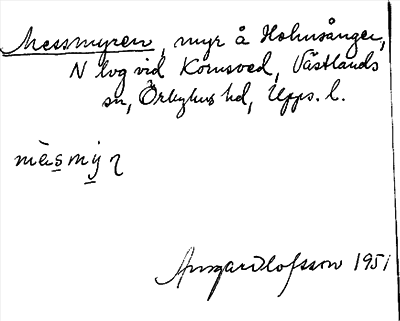 Messmyren, myr å Holmsånger,
N lvg vid Kornsved, Västlands
sn, Örbyhus hd, Upps. l.
mèsmỳr
Olofsson 1951